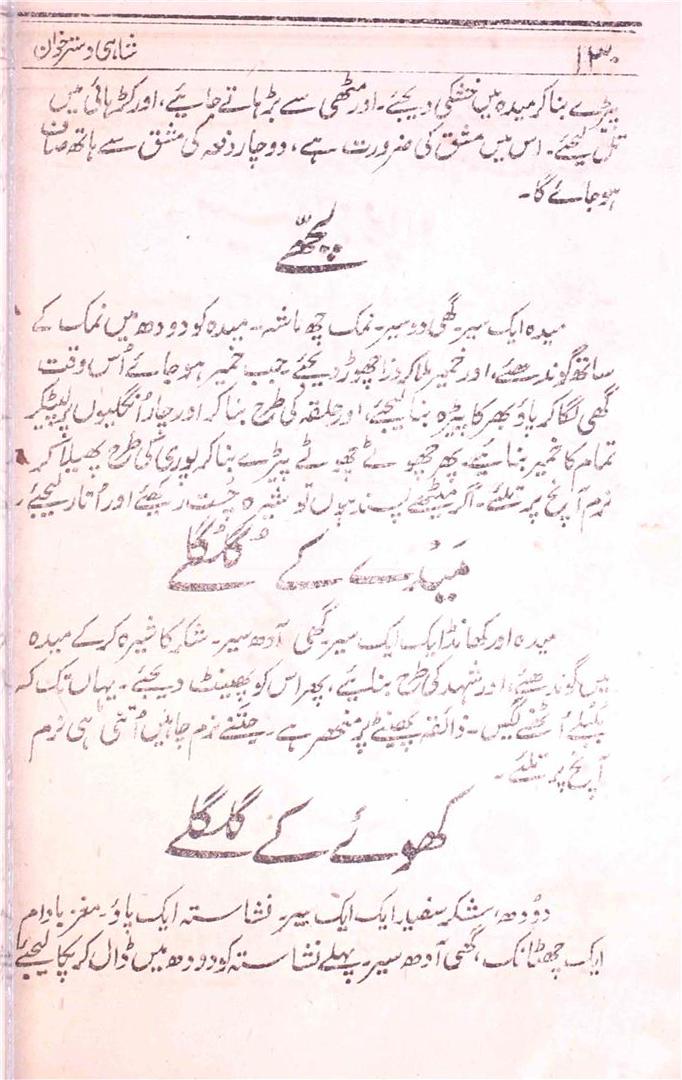 ۱۳۰ شاہی دسترخوان
پیڑے بنا کر میدہ میں خشکی دیجئے۔ اور مٹھی سے بڑہاتے جایئے، اور کڑہائی میں
تل لیجئے۔ اس میں مشق کی ضرورت ہے، دو چار دفعہ کی مشق سے ہاتھ صاف
ہو جائے گا۔
لچھّے
میدہ ایک سیر۔ گھی دو سیر۔ نمک چھ ماشہ۔ میدہ کو دودھ میں نمک کے
ساتھ گوندھئے، اور خمیر ملا کر ذرا چھوڑ دیجئے۔ جب خمیر ہو جائے اُس وقت
گھی لگا کر پاؤ بھر کا پیڑہ بنا لیجئے، اور حلقہ کی طرح بنا کر اور چار اُنگلیوں پر لپیٹ کر
تمام کا خمیر بنایئے۔ پھر چھوٹے چھوٹے پیڑے بنا کر پوری کی طرح پھیلا کر
نرم آنچ پر تلئے۔ اگر میٹھے پسند ہوں تو شیرہ چُست رکھئے اور اُتار لیجئے۔
مَیدے کے گُلگُلے
میدہ اور کھانڈ ایک ایک سیر۔ گھی آدھ سیر۔ شکر کا شیرہ کر کے میدہ
میں گوندھئے، اور شہد کی طرح بنایئے، پھر اس کو پھینٹ دیجئے۔ یہاں تک کہ
بُلبُلے اُٹھنے لگیں۔ ذائقہ پھینٹنے پر منحصر ہے۔ جتنے نرم چاہیں اُتنی ہی نرم
آنچ پر تلئے۔
کھوئے کے گلگلے
دُودھ، شکر سفید ایک ایک سیر۔ نشاستہ ایک پاؤ۔ مغز بادام
ایک چھٹانک، گھی آدھ سیر۔ پہلے نشاستہ کو دودھ میں ڈال کر پکا لیجئے